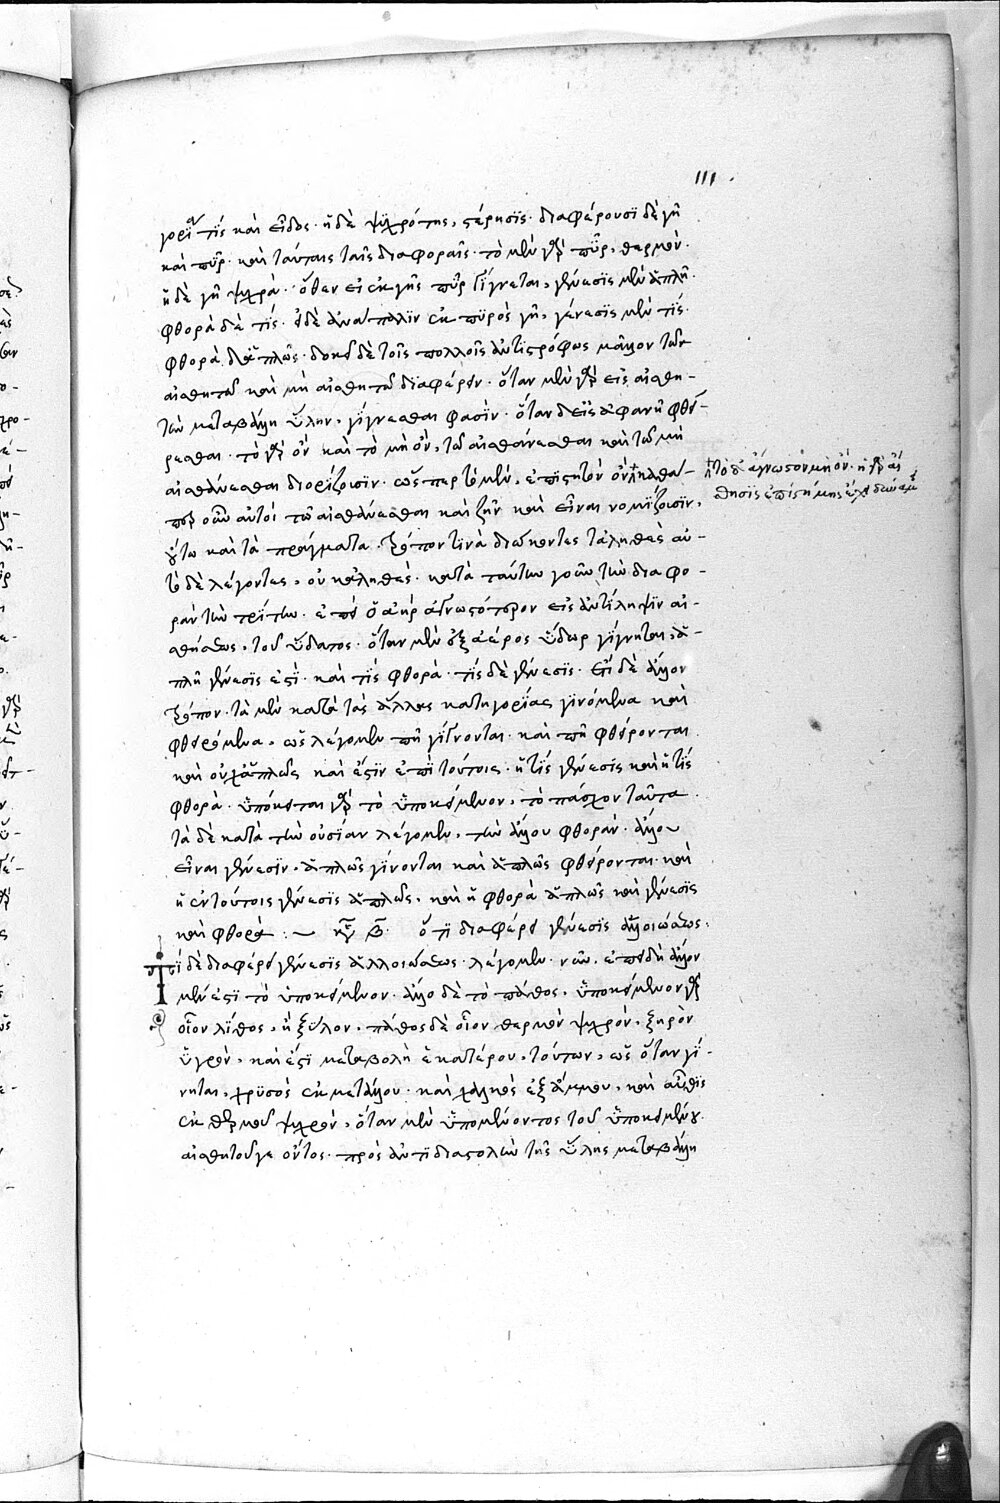 111.
γορία τίς καὶ εἶδος· ἡ δὲ ψυχρότης, στέρησις· διαφέρουσι δὲ γῆ
καὶ πῦρ· καὶ ταύταις ταῖς διαφοραῖς· τὸ μὲν γὰρ πῦρ, θερμόν·
ἡ δὲ γῆ ψυχρά· ὅθεν εἰ ἐκ γῆς πῦρ γίγνεται, γένεσις μὲν ἁπλῆ·
φθορὰ δὲ τίς· εἰ δὲ ἀνάπαλιν ἐκ πυρὸς γῆ, γένεσις μὲν τίς·
φθορὰ δὲ ἁπλῶς· δοκεῖ δὲ τοῖς πολλοῖς ἀντιστρόφως μᾶλλον τῶ
αἰσθητῶ καὶ μὴ αἰσθητῶ διαφέρειν· ὅταν μὲν γὰρ εἰς αἰσθη-
τὴν μεταβάλλη ὕλην, γίγνεσθαι φασὶν· ὅταν δ' εἰς ἀφανῆ φθεί-
ρεσθαι· τὸ γὰρ ὂν καὶ τὸ μὴ ὂν, τῶ αἰσθάνεσθαι καὶ τῶ μὴ
αἰσθάνεσθαι διορίζουσιν· ὥσπερ τὸ μὲν, ἐπιστητὸν ὂν
περ οὖν αὐτοὶ τῶ αἰσθάνεσθαι καὶ ζῆν καὶ εἶναι νομίζουσιν,
οὕτω καὶ τὰ πράγματα· τρόπον τινὰ διώκοντες τἀληθὲς αὐ-
τὸ δὲ λέγοντες, οὐκ ἀληθές· κατὰ ταύτην γοῦν τὴν διαφο-
ρὰν τὴν τρίτην· ἐπεὶ ὁ ἀὴρ ἀγνωστότερον εἰς ἀντίληψιν αἰ-
σθήσεως, τοῦ ὕδατος· ὅταν μὲν ἐξ ἀέρος ὕδωρ γίγνηται, ἁ-
πλῆ γένεσις ἐστὶ· καὶ τὶς φθορά· τίς δὲ γένεσις· ἔτι δὲ ἄλλον
τρόπον· τὰ μὲν κατὰ τὰς ἄλλας κατηγορίας γινόμενα καὶ
φθειρόμενα, ὡς λέγομεν πῆ γίγνονται· καὶ πῆ φθείρονται
καὶ οὐχ ἁπλῶς καὶ ἔστιν ἐπὶ τούτοις· ἡ τὶς γένεσις καὶ ἡ τὶς
φθορά· ὑπόκειται γὰρ τὸ ὑποκείμενον, τὸ πάσχον ταῦτα
τὰ δὲ κατὰ τὴν οὐσίαν λέγομεν, τὴν ἄλλου φθορὰν· ἄλλου
εἶναι γένεσιν, ἁπλῶς γίνονται καὶ ἁπλῶς φθείρονται· καὶ
ἡ ἐν τούτοις γένεσις ἁπλῶς, καὶ ἡ φθορὰ ἁπλῶς καὶ γένεσις
καὶ φθορά :– κεφ β· ὅτι διαφέρει γένεσις ἀλλοιώσεως·
Τί δὲ διαφέρει γένεσις ἀλλοιώσεως· λέγομεν νῦν, ἐπειδὴ ἄλλον
μὲν ἐστὶ τὸ ὑποκείμενον· ἄλλο δὲ τὸ πάθος, ὑποκείμενον γὰρ
οἷον λίθος, ἢ ξύλον, πάθος δὲ οἷον θερμὸν ψυχρόν, ξηρὸν
ὑγρόν, καὶ ἔστι μεταβολὴ ἑκατέρου, τούτων, ὡς ὅταν γί-
νηται, χρυσὸς ἐκ μετάλλου· καὶ χαλκὸς ἐξ ἄμμου, καὶ αὖθις
ἐκ θερμοῦ ψυχρόν, ὅταν μὲν ὑπομένοντος τοῦ ὑποκειμένου
αἰσθητοῦ γε ὄντος· πρὸς ἀντιδιαστολὴν τῆς ὕλης μεταβάλλη
τὸ δ' ἄγνωστον μὴ ὄν· ἡ γὰρ αἴ
σθησις ἐπιστήμης ἔχει δύναμιν